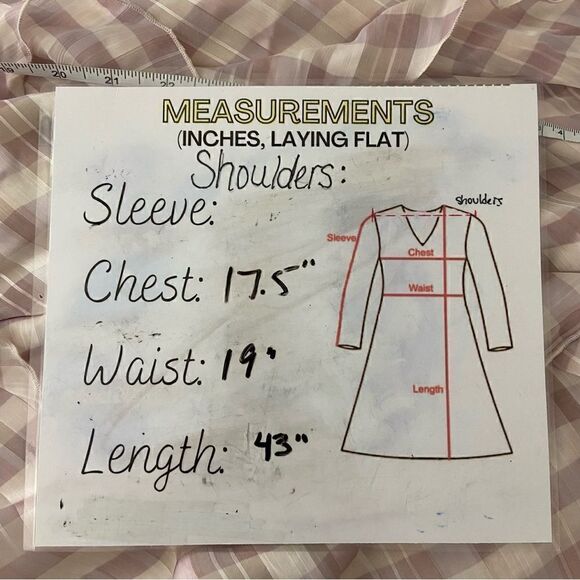 20 21
4
MEASUREMENTS
(INCHES, LAYING FLAT)
Shoulders:
Sleeve:
Chest: 17.5"
Waist: 19"
Length: 43"
shoulders
Sleeve
Chest
Waist
Length